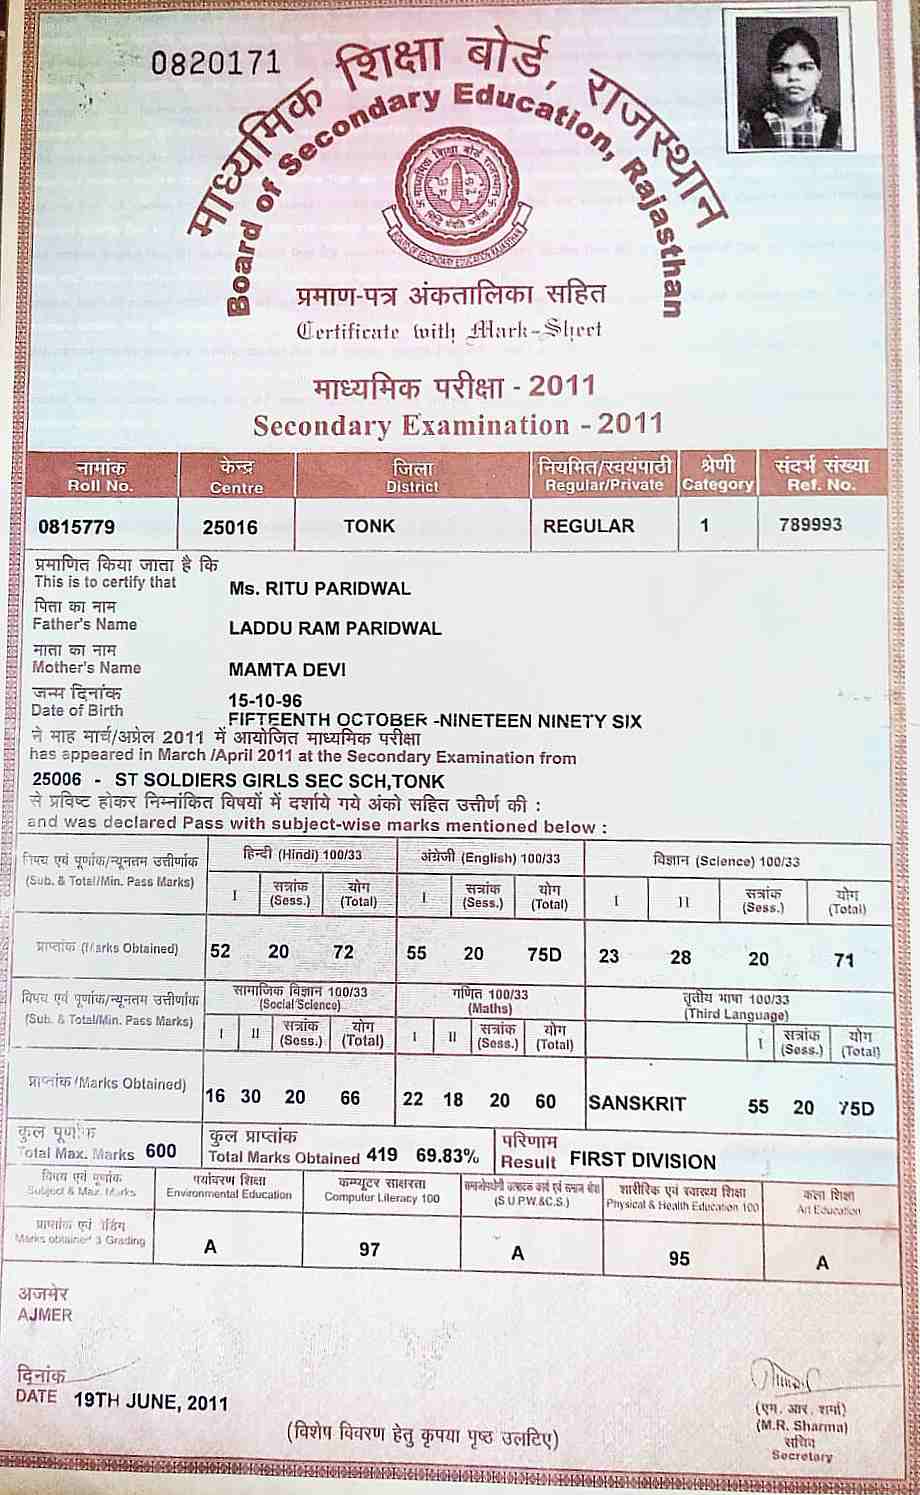 0820171
माध्यमिक शिक्षा बोर्ड, राजस्थान
Board of Secondary Education, Rajasthan
माध्यमिक शिक्षा बोर्ड राजस्थान
BOARD OF SECONDARY EDUCATION RAJASTHAN
प्रमाण-पत्र अंकतालिका सहित
Certificate with Mark-Sheet
माध्यमिक परीक्षा - 2011
Secondary Examination - 2011
नामांक केन्द्र जिला नियमित/स्वयंपाठी श्रेणी संदर्भ संख्या
Roll No. Centre District Regular/Private Category Ref. No.
0815779 25016 TONK REGULAR 1 789993
प्रमाणित किया जाता है कि
This is to certify that Ms. RITU PARIDWAL
पिता का नाम
Father's Name LADDU RAM PARIDWAL
माता का नाम
Mother's Name MAMTA DEVI
जन्म दिनांक 15-10-96
Date of Birth FIFTEENTH OCTOBER -NINETEEN NINETY SIX
ने माह मार्च/अप्रेल 2011 में आयोजित माध्यमिक परीक्षा
has appeared in March /April 2011 at the Secondary Examination from
25006 - ST SOLDIERS GIRLS SEC SCH,TONK
से प्रविष्ट होकर निम्नांकित विषयों में दर्शाये गये अंको सहित उत्तीर्ण की :
and was declared Pass with subject-wise marks mentioned below :
विषय एवं पूर्णांक/न्यूनतम उत्तीर्णांक हिन्दी (Hindi) 100/33 अंग्रेजी (English) 100/33 विज्ञान (Science) 100/33
(Sub. & Total/Min. Pass Marks) I सत्रांक (Sess.) योग (Total) I सत्रांक (Sess.) योग (Total) I II सत्रांक (Sess.) योग (Total)
प्राप्तांक (Marks Obtained) 52 20 72 55 20 75D 23 28 20 71
विषय एवं पूर्णांक/न्यूनतम उत्तीर्णांक सामाजिक विज्ञान 100/33 गणित 100/33 तृतीय भाषा 100/33
(Social Science) (Maths) (Third Language)
(Sub. & Total/Min. Pass Marks) I II सत्रांक (Sess.) योग (Total) I II सत्रांक (Sess.) योग (Total) I सत्रांक (Sess.) योग (Total)
प्राप्तांक /Marks Obtained) 16 30 20 66 22 18 20 60 SANSKRIT 55 20 75D
कुल पूर्णांक कुल प्राप्तांक परिणाम
Total Max. Marks 600 Total Marks Obtained 419 69.83% Result FIRST DIVISION
विषय एवं पूर्णांक पर्यावरण शिक्षा कम्प्यूटर साक्षरता समाजोपयोगी उत्पादक कार्य एवं समाज सेवा शारीरिक एवं स्वास्थ्य शिक्षा कला शिक्षा
Subject & Max. Marks Environmental Education Computer Literacy 100 (S.U.P.W.&C.S.) Physical & Health Education 100 Art Education
प्राप्तांक एवं ग्रेडिंग
Marks obtained & Grading A 97 A 95 A
अजमेर
AJMER
दिनांक
DATE 19TH JUNE, 2011
(एम. आर. शर्मा)
(M.R. Sharma)
सचिव
Secretary
(विशेष विवरण हेतु कृपया पृष्ठ उलटिए)